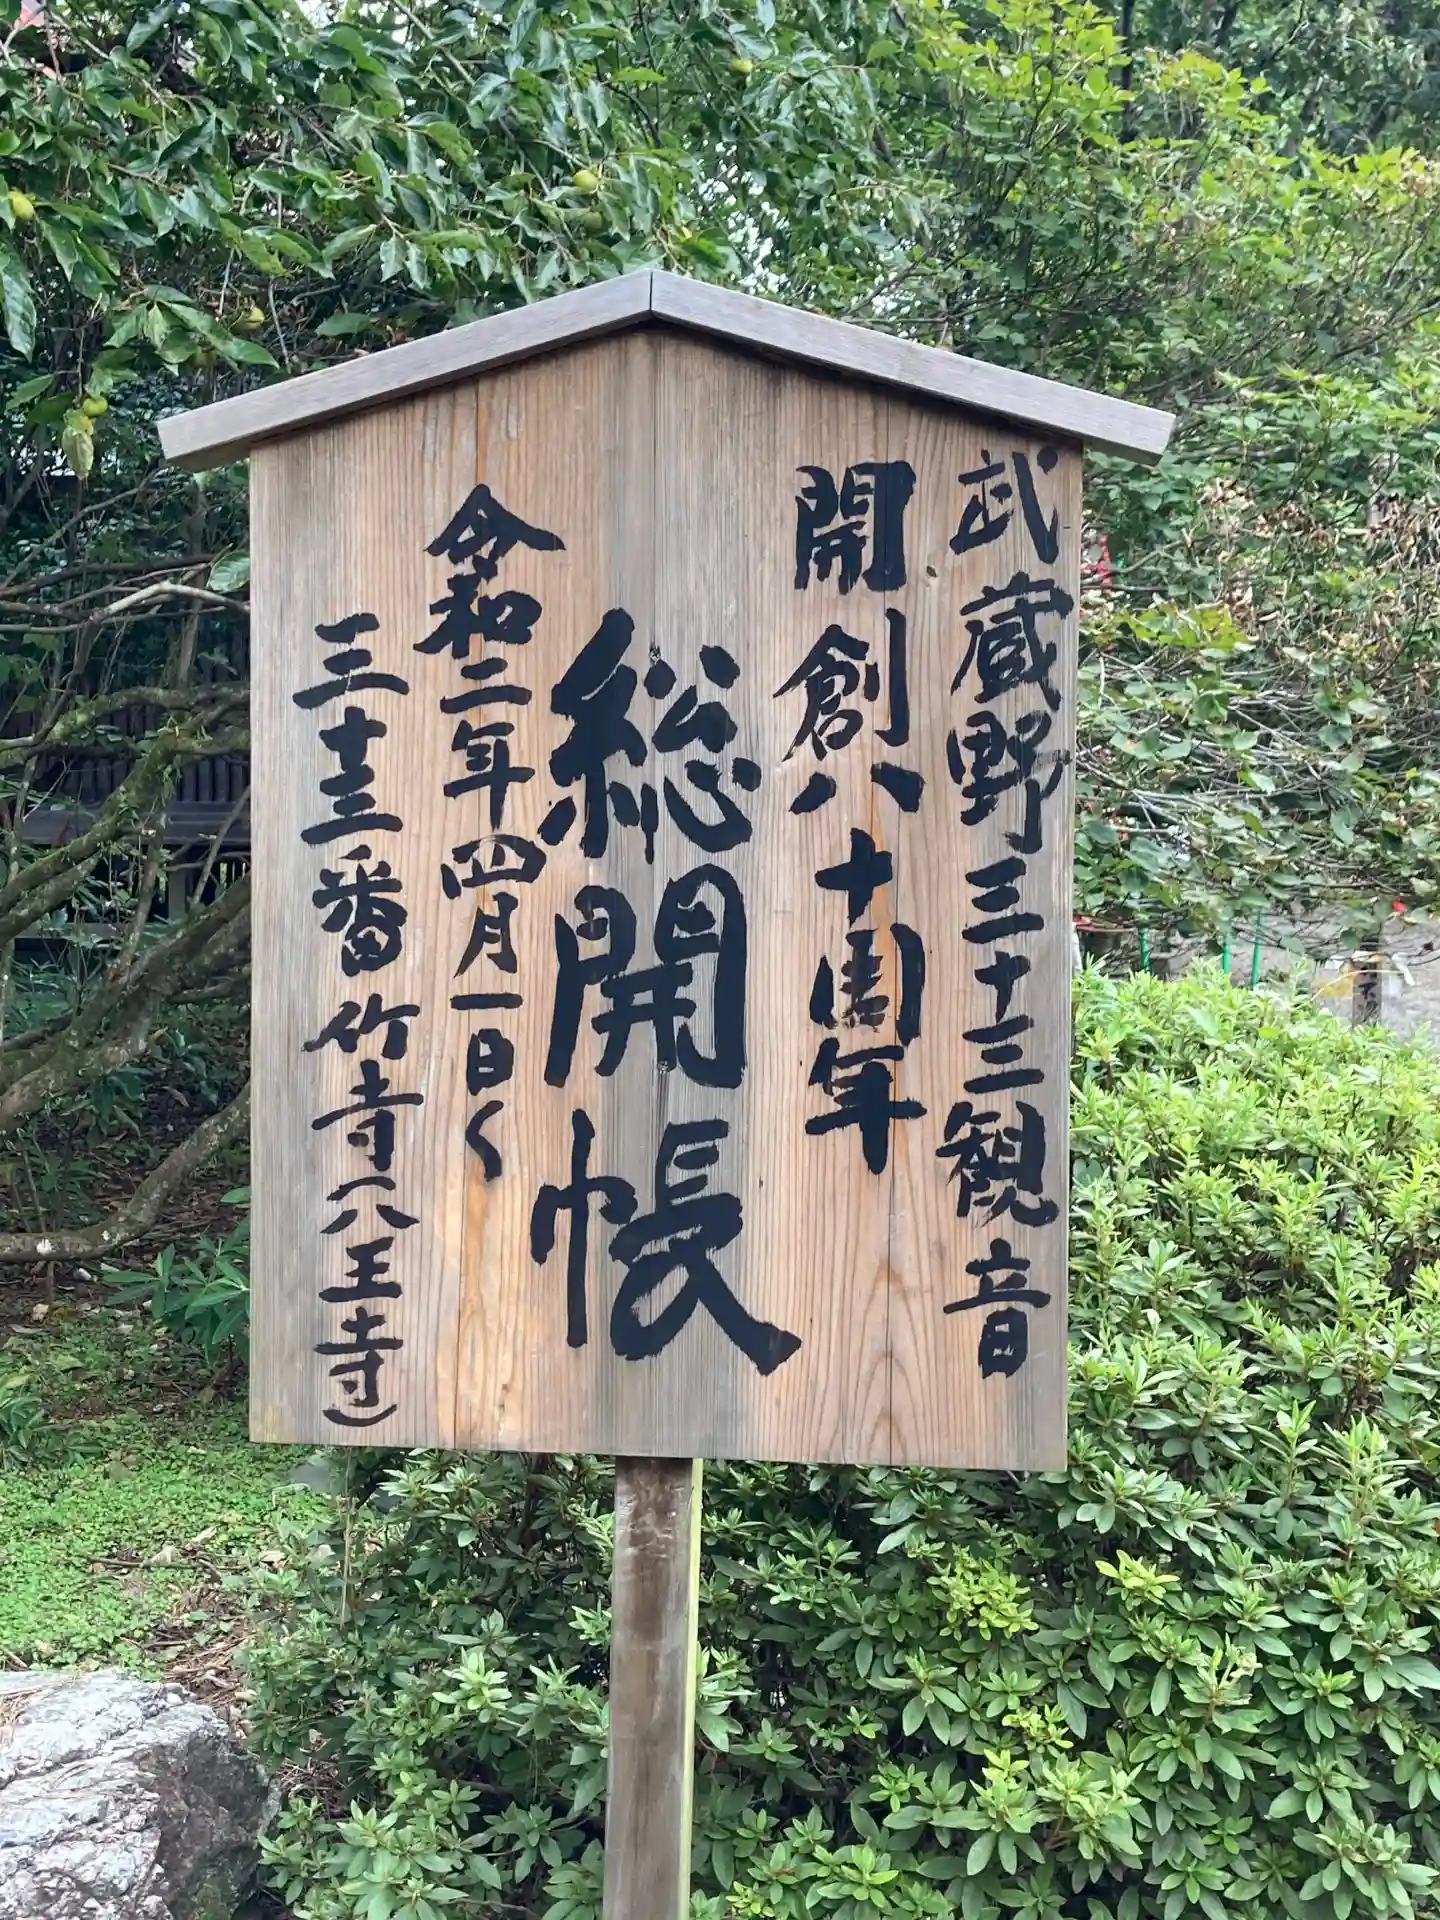 武蔵野三十三観音
開創八十周年
総開帳
令和二年四月一日〜
三十三番竹寺(八王寺)